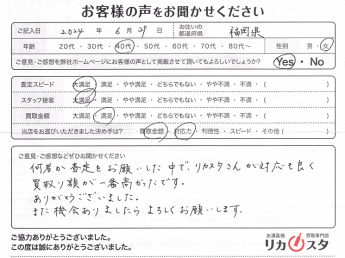 お客様の声をお聞かせください
ご記入日 2024 年 6 月 29 日 お住いの都道府県 福岡県
年齢 20代・30代・40代・50代・60代・70代・80代〜 性別 男・女
ご意見・ご感想を弊社ホームページにお客様の声として掲載させて頂いてもよろしいでしょうか? Yes・No
査定スピード 大満足・満足・やや満足・どちらでもない・やや不満・不満・( )
スタッフ接客 大満足・満足・やや満足・どちらでもない・やや不満・不満・( )
買取金額 大満足・満足・やや満足・どちらでもない・やや不満・不満・( )
当店をお選びいただきました決め手は? 買取金額・対応力・利便性・スピード・その他( )
ご意見・ご感想などぜひお聞かせください
何者か査定をお願いした中で、リカスタさんが対応も良く
買取り額が一番高かったです。
ありがとうございました。
また機会ありましたらよろしくお願いします。
ご協力ありがとうございました。
この度は誠にありがとうございました。
お酒直感 買取専門店
リカスタ